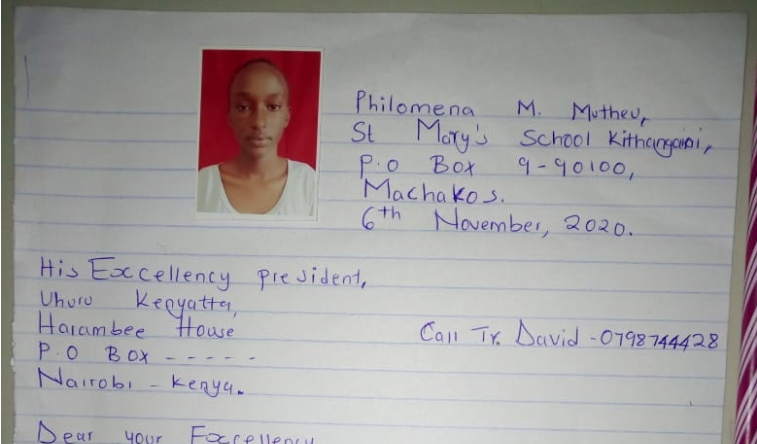 Philomena M. Mutheu,
St Mary's School Kithangaini,
P.O Box 9-90100,
Machakos.
6th November, 2020.
His Excellency president,
Uhuru Kenyatta,
Harambee House
Call Tr. David - 0798744428
P.O BOX - - - - -
Nairobi - Kenya.
Dear your Excellency